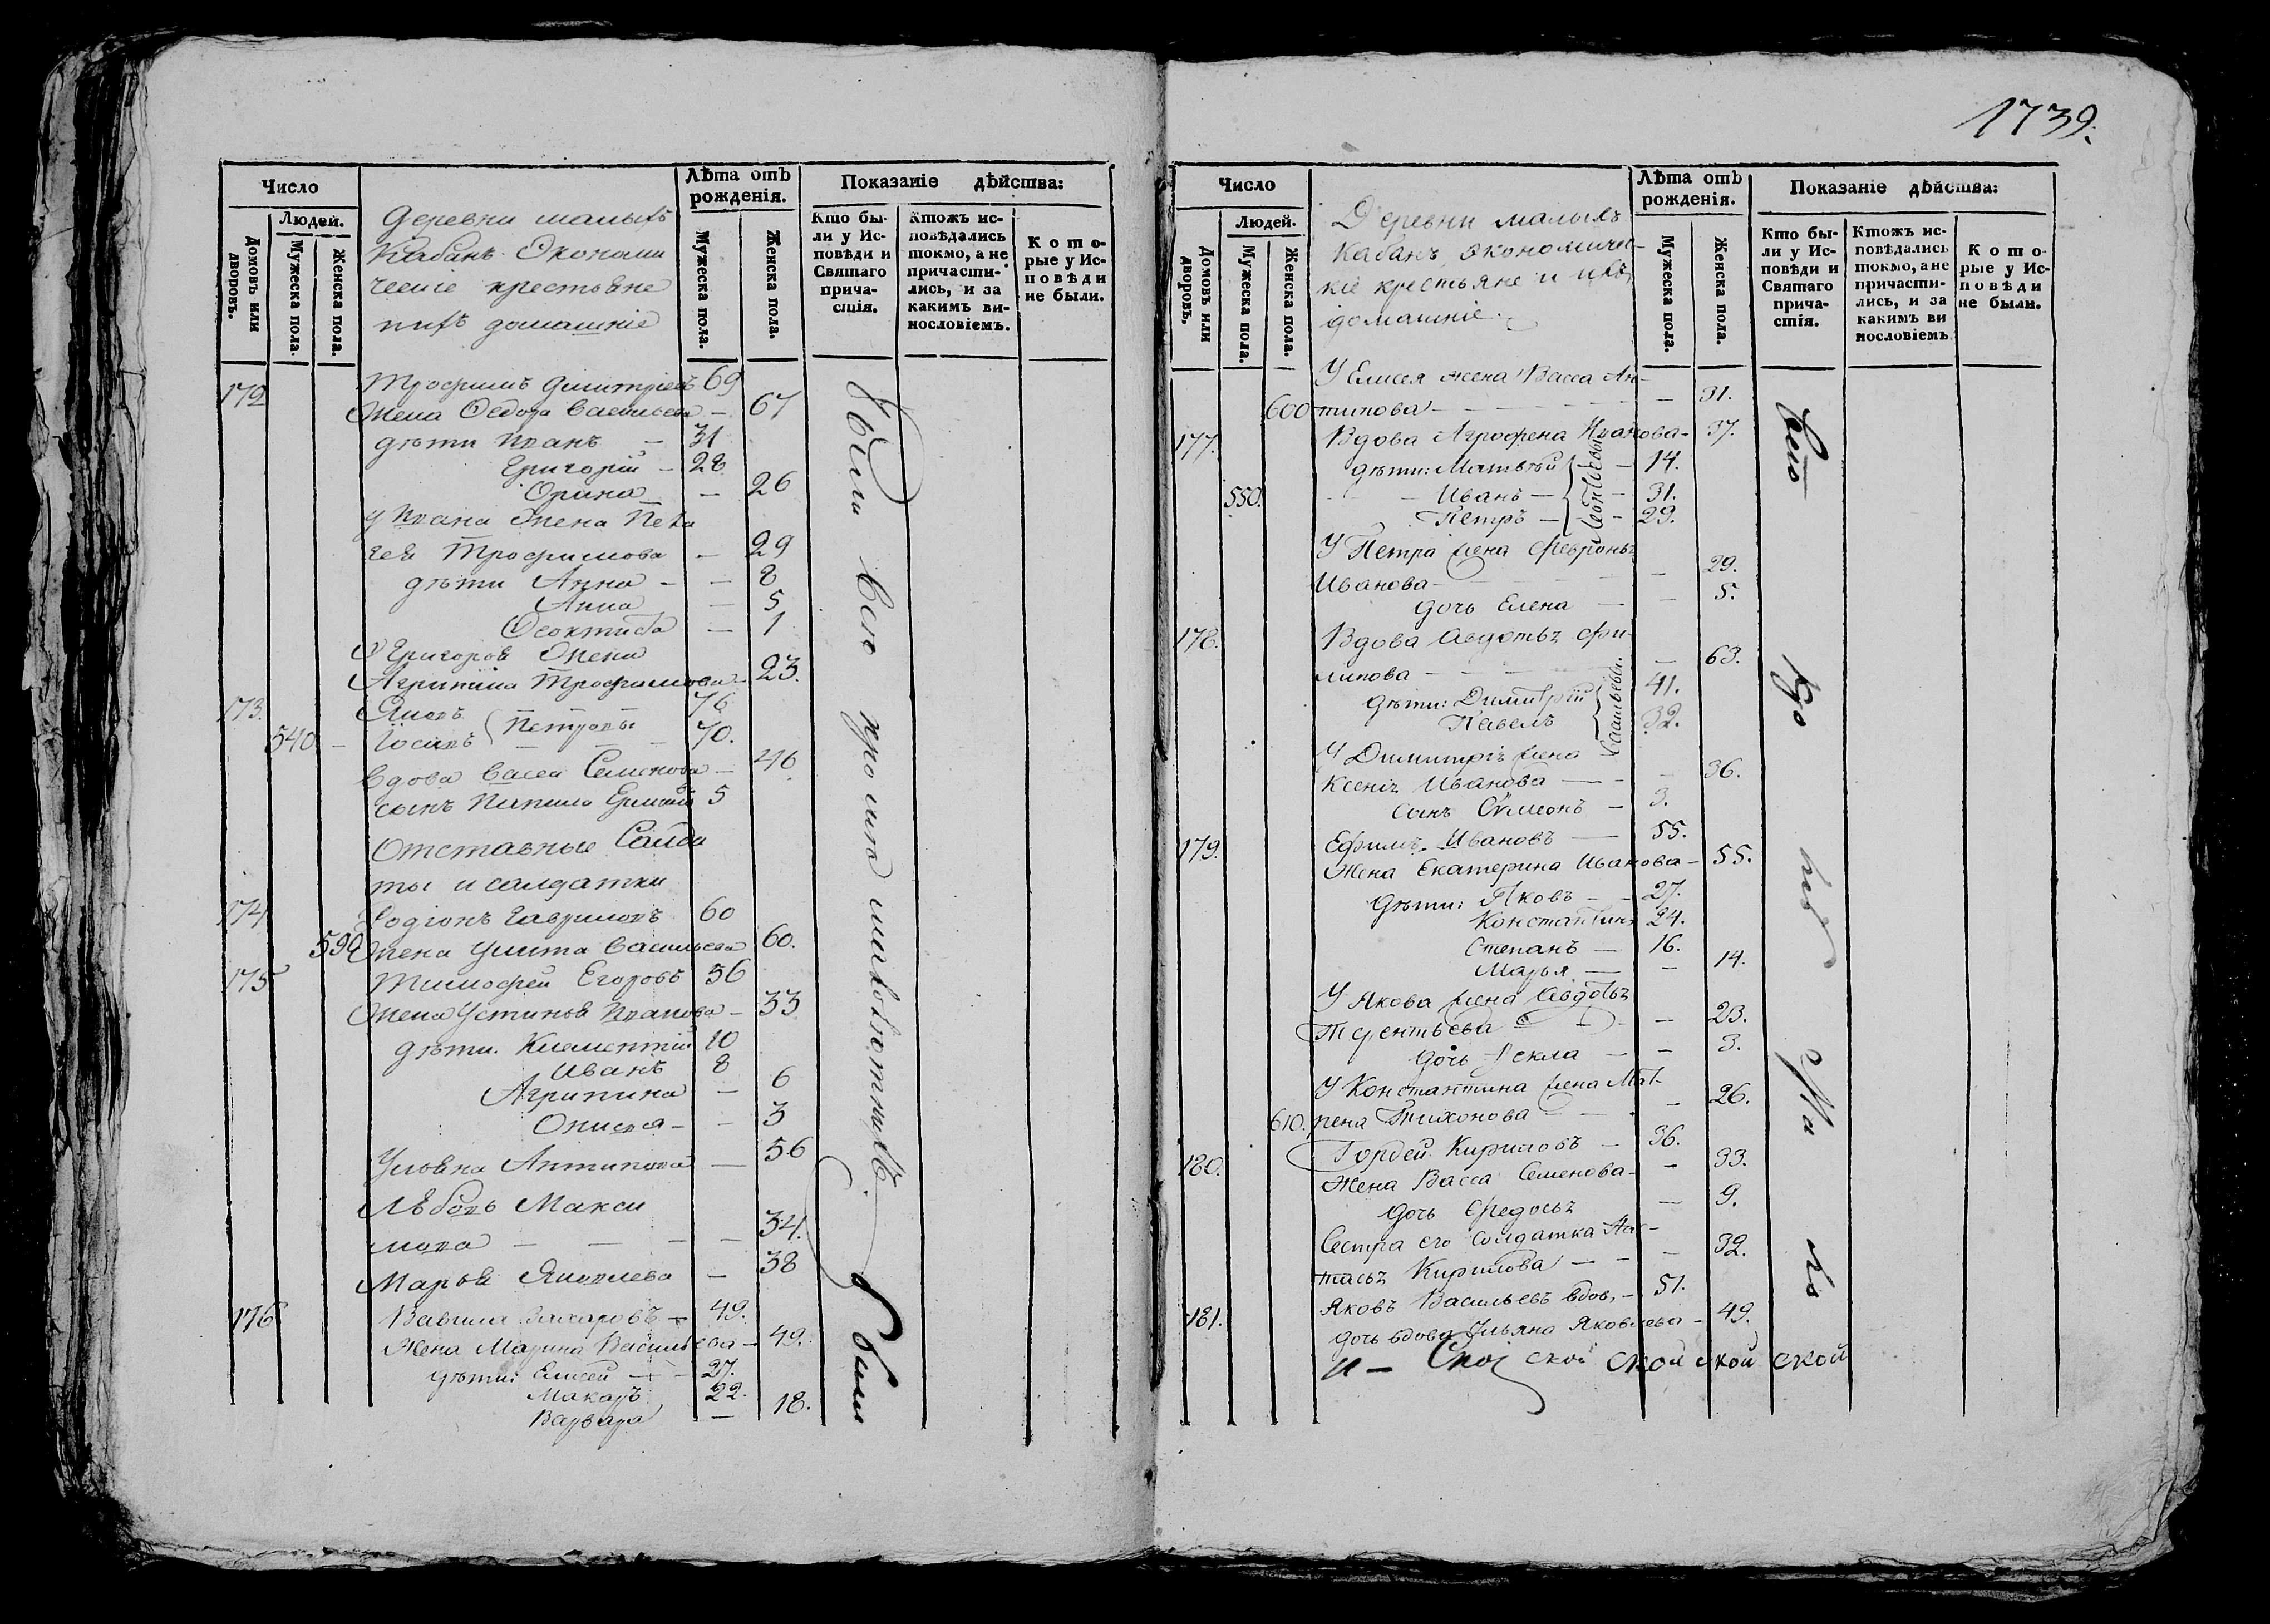 1739.
Число
Людей.
Домовъ или дворовъ.
Мужеска пола.
Женска пола.
Деревни малыхъ
Кабанъ Экономи
ческіе крестьяне
ихъ домашніе
Лѣта отъ рожденія.
Мужеска пола.
Женска пола.
Показаніе дѣйства:
Кто бы-
ли у Ис-
повѣди и
Святаго
прича-
стія.
Ктожъ ис-
повѣдались
токмо, а не
причасти-
лись, и за
какимъ ви-
нословіемъ.
Кото-
рые у Ис-
повѣди
не были.
172 Трофимъ Димитріевъ 69
Жена Ѳедора Васильева — 67
дѣти Иванъ — 31
Григорій — 28
Орина — 26
У Ивана жена Пела
гея Трофимова — 29
дѣти Анна — — 8
Анна — 5
Ѳеоктиста — 1
У Григорья жена
Агрипина Трофимова — 23.
173. Яковъ 76
540 — Іосифъ Петровы 70.
Вдова Васса Семенова — 46
сынъ 5
Отставные Салда
ты и салдатки
174 Родіонъ Гавриловъ 60
590 Жена Улита Васильева 60.
175 Тимофей Егоровъ 56
Жена Устинья Иванова — 33
дѣти. Климентій 10
Иванъ 8
Агрипина — 6
Онисья — — 3
Ульяна Антипова — 56
Любовь Макси
мова — — — — 34.
Марья Яковлева — 38
176 Вавила Захаровъ — 49.
Жена Марина Васильева — 49.
дѣти: Елисей — — 27.
Макаръ 22.
Варвара — 18.
были
Число
Людей.
Домовъ или дворовъ.
Мужеска пола.
Женска пола.
Деревни малыхъ
Кабанъ, экономичес-
кіе крестьяне и ихъ
домашніе.
Лѣта отъ рожденія.
Мужеска пола.
Женска пола.
Показаніе дѣйства:
Кто бы-
ли у Ис-
повѣди и
Святаго
прича-
стія.
Ктожъ ис-
повѣдались
токмо, а не
причасти-
лись, и за
какимъ ви
нословіемъ
Кото-
рые у Ис-
повѣди
не были.
У Елисея жена Васса Ан-
600 типова — — 31.
177. Вдова Агрофена Иванова — 37.
дѣти: Матвѣй — 14.
550. Иванъ — 31.
Петръ — 29.
Леонтьевы
У Петра жена Февронья
Иванова — — 29.
дочь Елена — — 5.
178. Вдова Авдотья Фи-
липова — — 63.
дѣти: Димитрій 41.
Павелъ 32.
Савельевы.
У Димитрія жена
Ксенія Иванова — — 36.
сынъ Сѵмеонъ — 3.
179. Ефимъ Ивановъ — 55.
Жена Екатерина Иванова — 55.
дѣти: Яковъ — 27.
Константинъ 24.
Степанъ — 16.
Марья — — 14.
У Якова жена Авдотья
Терентьева — — 23.
дочь Фекла — — 3.
У Константина жена Мат-
610. рена Тихонова — 26.
180. Гордей Кириловъ — 36.
Жена Васса Семенова — — 33.
дочь Федосья — 9.
Сестра его солдатка Нас-
тасья Кирилова — — 32.
181. Яковъ Васильевъ вдов. — 51.
дочь вдова Ульяна Яковлева — 49.
ской ской ской ской